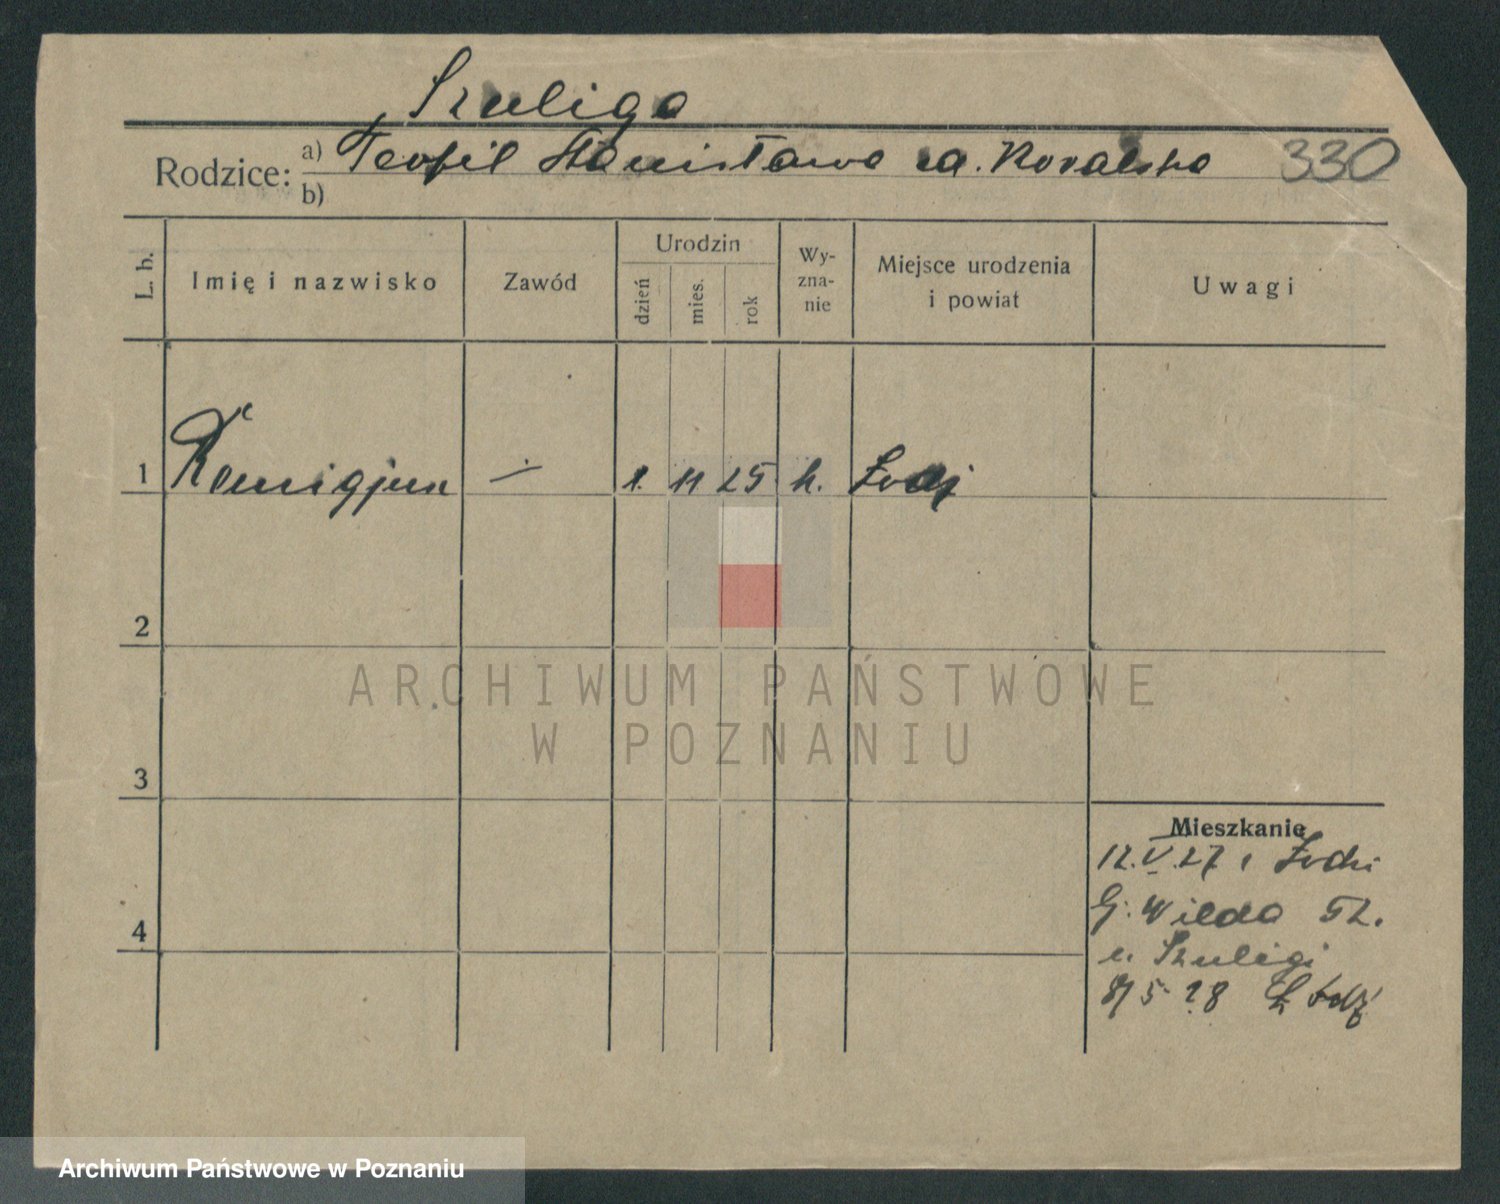 Szuliga
Rodzice: a) Teofil Stanisława za. Kowalska 330
b)
L. b. Imię i nazwisko Zawód Urodzin dzień mies. rok Wyznanie Miejsce urodzenia i powiat Uwagi
1 Remigjusz — 1. 11 25 k. Łodź
2
ARCHIWUM PAŃSTWOWE
W POZNANIU
3
Mieszkanie
12.V.27 z Łodzi
G. Wilda 52.
4
u Szuligi
8/5 28 Łodź
Archiwum Państwowe w Poznaniu